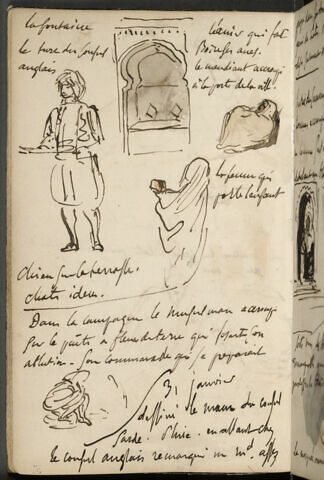 la fontaine
le turc du consul
anglais
Lânier qui fait
boire ses ânes.
le mendiant accroupi
à la porte de la ville.
la femme qui
porte l'enfant
chien sur la terrasse.
chats idem.
Dans la campagne le musulman accroupi
sur le puits à fleur de terre qui faisait son
ablution. Son commarade qui se préparait
31 janvier
dessiné le maure du consul
Sarde. Pluie. en allant chez
le consul anglais remarqué un md. assis